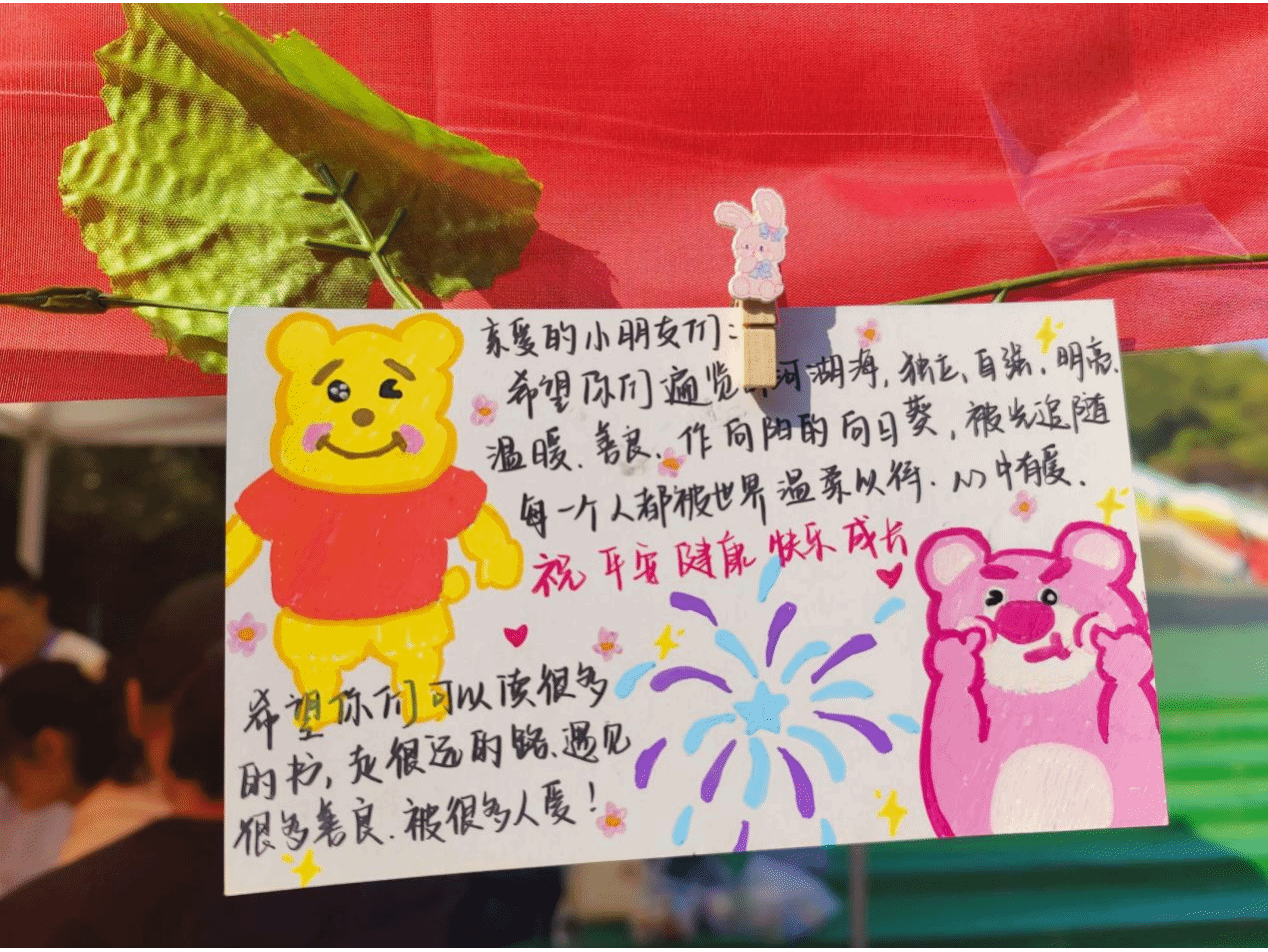 亲爱的小朋友们：
希望你们遍览河湖海，独立、自强、明亮、
温暖、善良、作向阳的向日葵，被光追随
每一个人都被世界温柔以待、心中有爱、
祝平安健康快乐成长
希望你们可以读很多
的书，走很远的路、遇见
很多善良、被很多人爱！